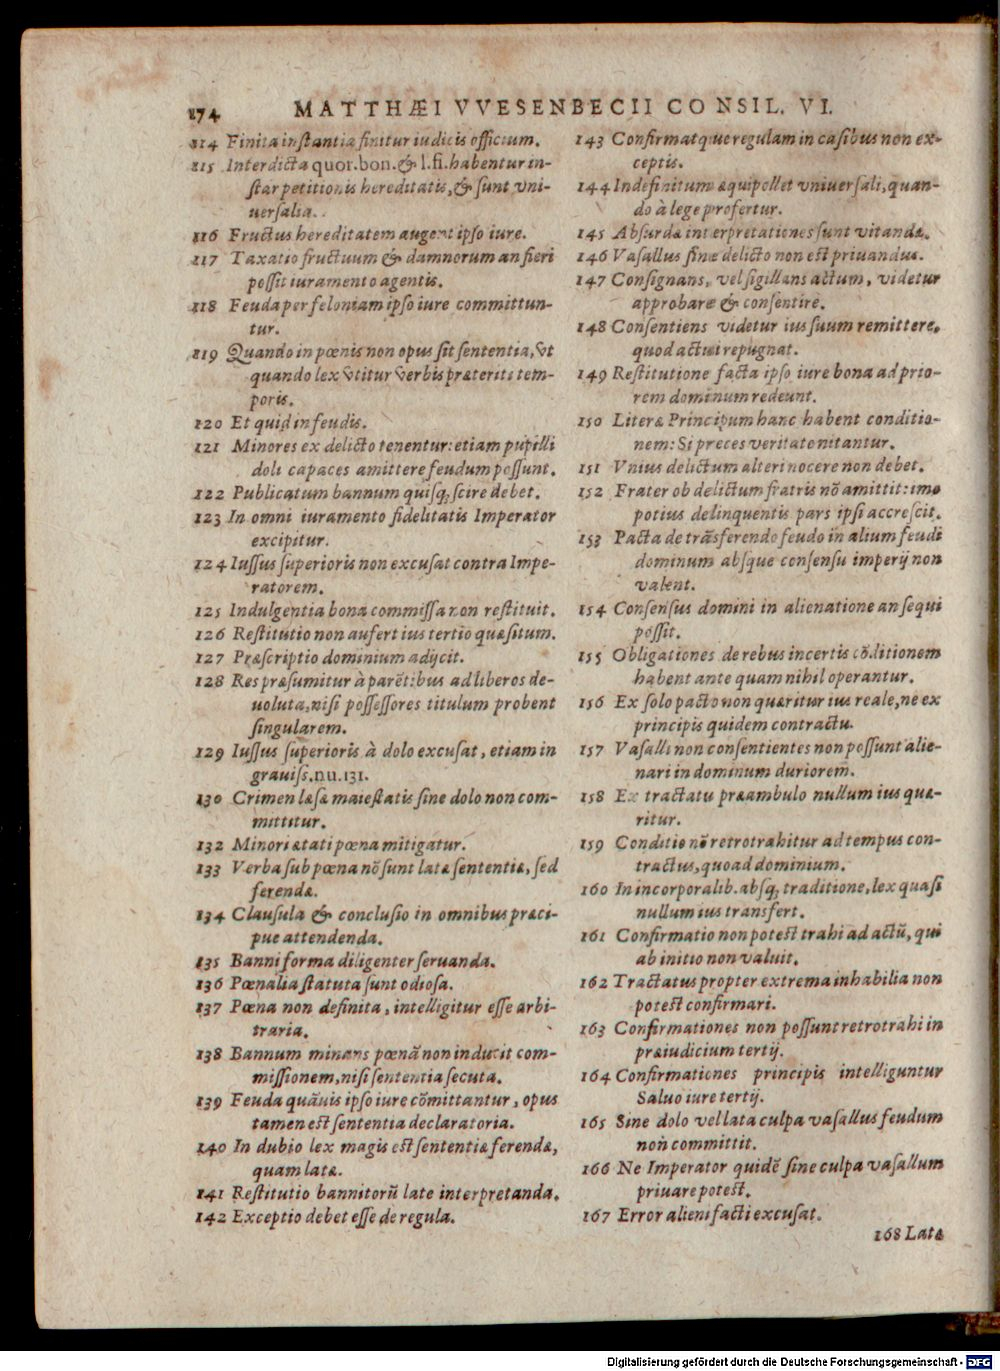 174 MATTHÆI VVESENBECII CONSIL. VI.
114 Finita instantia finitur iudicis officium.
115 Interdicta quor. bon. & l. fi. habentur in-
star petitionis hereditatis, & sunt vni-
uersalia.
116 Fructus hereditatem augent ipso iure.
117 Taxatio fructuum & damnorum an fieri
possit iuramento agentis.
118 Feuda per feloniam ipso iure committun-
tur.
119 Quando in pœnis non opus sit sententia, vt
quando lex vtitur verbis præteriti tem-
poris.
120 Et quid in feudis.
121 Minores ex delicto tenentur: etiam pupilli
doli capaces amittere feudum possunt.
122 Publicatum bannum quisq; scire debet.
123 In omni iuramento fidelitatis Imperator
excipitur.
124 Iussus superioris non excusat contra Impe-
ratorem.
125 Indulgentia bona commissa non restituit.
126 Restitutio non aufert ius tertio quæsitum.
127 Præscriptio dominium adijcit.
128 Res præsumitur à parẽtibus ad liberos de-
uoluta, nisi possessores titulum probent
singularem.
129 Iussus superioris à dolo excusat, etiam in
grauiss. nu. 131.
130 Crimen læsæ maiestatis sine dolo non com-
mittitur.
132 Minori ætati pœna mitigatur.
133 Verba sub pœna nõ sunt latæ sententiæ, sed
ferendæ.
134 Clausula & conclusio in omnibus præci-
pue attendenda.
135 Banni forma diligenter seruanda.
136 Pœnalia statuta sunt odiosa.
137 Pœna non definita, intelligitur esse arbi-
traria.
138 Bannum minans pœnã non inducit com-
missionem, nisi sententia secuta.
139 Feuda quãuis ipso iure cõmittantur, opus
tamen est sententia declaratoria.
140 In dubio lex magis est sententiæ ferendæ,
quam latæ.
141 Restitutio bannitorũ late interpretanda.
142 Exceptio debet esse de regula.
143 Confirmatque regulam in casibus non ex-
ceptis.
144 Indefinitum æquipollet vniuersali, quan-
do à lege profertur.
145 Absurdæ interpretationes sunt vitandæ.
146 Vasallus sine delicto non est priuandus.
147 Consignans, vel sigillans actum, videtur
approbare & consentire.
148 Consentiens videtur ius suum remittere,
quod actui repugnat.
149 Restitutione facta ipso iure bona ad prio-
rem dominum redeunt.
150 Literæ Principum hanc habent conditio-
nem: Si preces veritate nitantur.
151 Vnius delictum alteri nocere non debet.
152 Frater ob delictum fratris nõ amittit: imo
potius delinquentis pars ipsi accrescit.
153 Pacta de trãsferendo feudo in alium feudi
dominum absque consensu imperij non
valent.
154 Consensus domini in alienatione an sequi
possit.
155 Obligationes de rebus incertis cõditionem
habent ante quam nihil operantur.
156 Ex solo pacto non quæritur ius reale, ne ex
principis quidem contractu.
157 Vasalli non consentientes non possunt alie-
nari in dominum duriorem.
158 Ex tractatu præambulo nullum ius quæ-
ritur.
159 Conditio nõ retrotrahitur ad tempus con-
tractus, quoad dominium.
160 In incorporalib. absq; traditione, lex quasi
nullum ius transfert.
161 Confirmatio non potest trahi ad actũ, qui
ab initio non valuit.
162 Tractatus propter extrema inhabilia non
potest confirmari.
163 Confirmationes non possunt retrotrahi in
præiudicium tertij.
164 Confirmationes principis intelliguntur
Saluo iure tertij.
165 Sine dolo vel lata culpa vasallus feudum
non committit.
166 Ne Imperator quidẽ sine culpa vasallum
priuare potest.
167 Error alieni facti excusat.
168 Lata
Digitalisierung gefördert durch die Deutsche Forschungsgemeinschaft - DFG